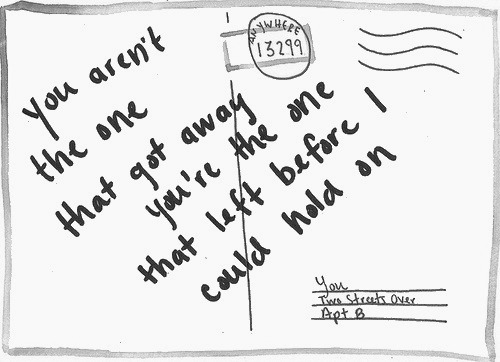 ANYWHERE
13299
You aren't
the one
that got away
you're the one
that left before I
could hold on
You
Two Streets Over
Apt B